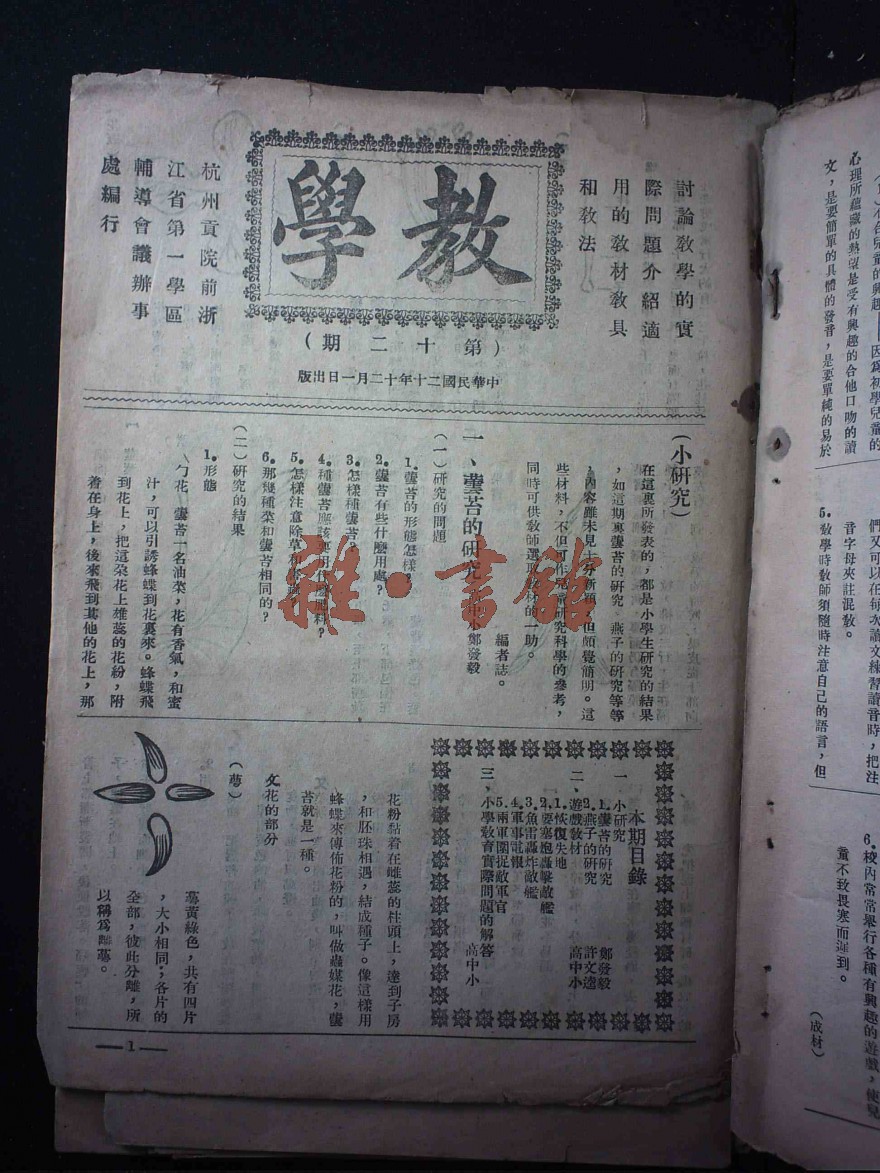 討論教學的實
際問題介紹適
用的教材教具
和教法
教學
(第十二期)
中華民國二十年十二月一日出版
杭州貢院前浙
江省第一學區
輔導會議辦事
處編行
(小研究)
在這裏所發表的,都是小學生研究的結果
,如這期裏蕓苔的研究,燕子的研究等等
,內容雖未見十分新穎,但頗覺簡明。這
些材料,不但可作兒童研究科學的參考,
同時可供敎師選取敎材的一助。
編者誌。
一、蕓苔的研究 高中小鄭發毅
(一)研究的問題
1。蕓苔的形態怎樣?
2。蕓苔有些什麼用處?
3。怎樣種蕓苔?
4。種蕓苔應該運用什麼肥料?
5。怎樣注意除草和
6。那幾種菜和蕓苔相同的?
(二)研究的結果
1。形態
ㄅ花 蕓苔一名油菜,花有香氣,和蜜
汁,可以引誘蜂蝶到花裏來。蜂蝶飛
到花上,把這朶花上雄蕊的花粉,附
着在身上,後來飛到其他的花上,那
本期目錄
一、小研究
1。蕓苔的研究 鄭發毅
2。燕子的研究 許文遠
二、遊戲敎材 高中小
1。恢復失地
2。要塞炮轟擊敵艦
3。魚雷轟炸敵艦
4。軍事電報
5。兩軍圍捉敵軍官
三、小學敎育實際問題的解答 高中小
花粉黏着在雌蕊的柱頭上,達到子房
,和胚珠相遇,結成種子。像這樣用
蜂蝶來傳佈花粉的,叫做蟲媒花,蕓
苔就是一種。
ㄆ花的部分
(萼)
萼黃綠色,共有四片
,大小相同,各片的
全部,彼此分離,所
以稱爲離萼。
—1—
雜·書館
因爲初學兒童的
心理所蘊藏的熱望是受有興趣的合他口吻的讀
文,是要簡單的具體的發音,是要單純的易於
們又可以在每次讀文練習讀音時,把注
音字母夾註混敎。
5。敎學時敎師須隨時注意自己的語言,但
6。校內常常舉行各種有興趣的遊戲,使兒
童不致畏寒而遲到。
(成材)